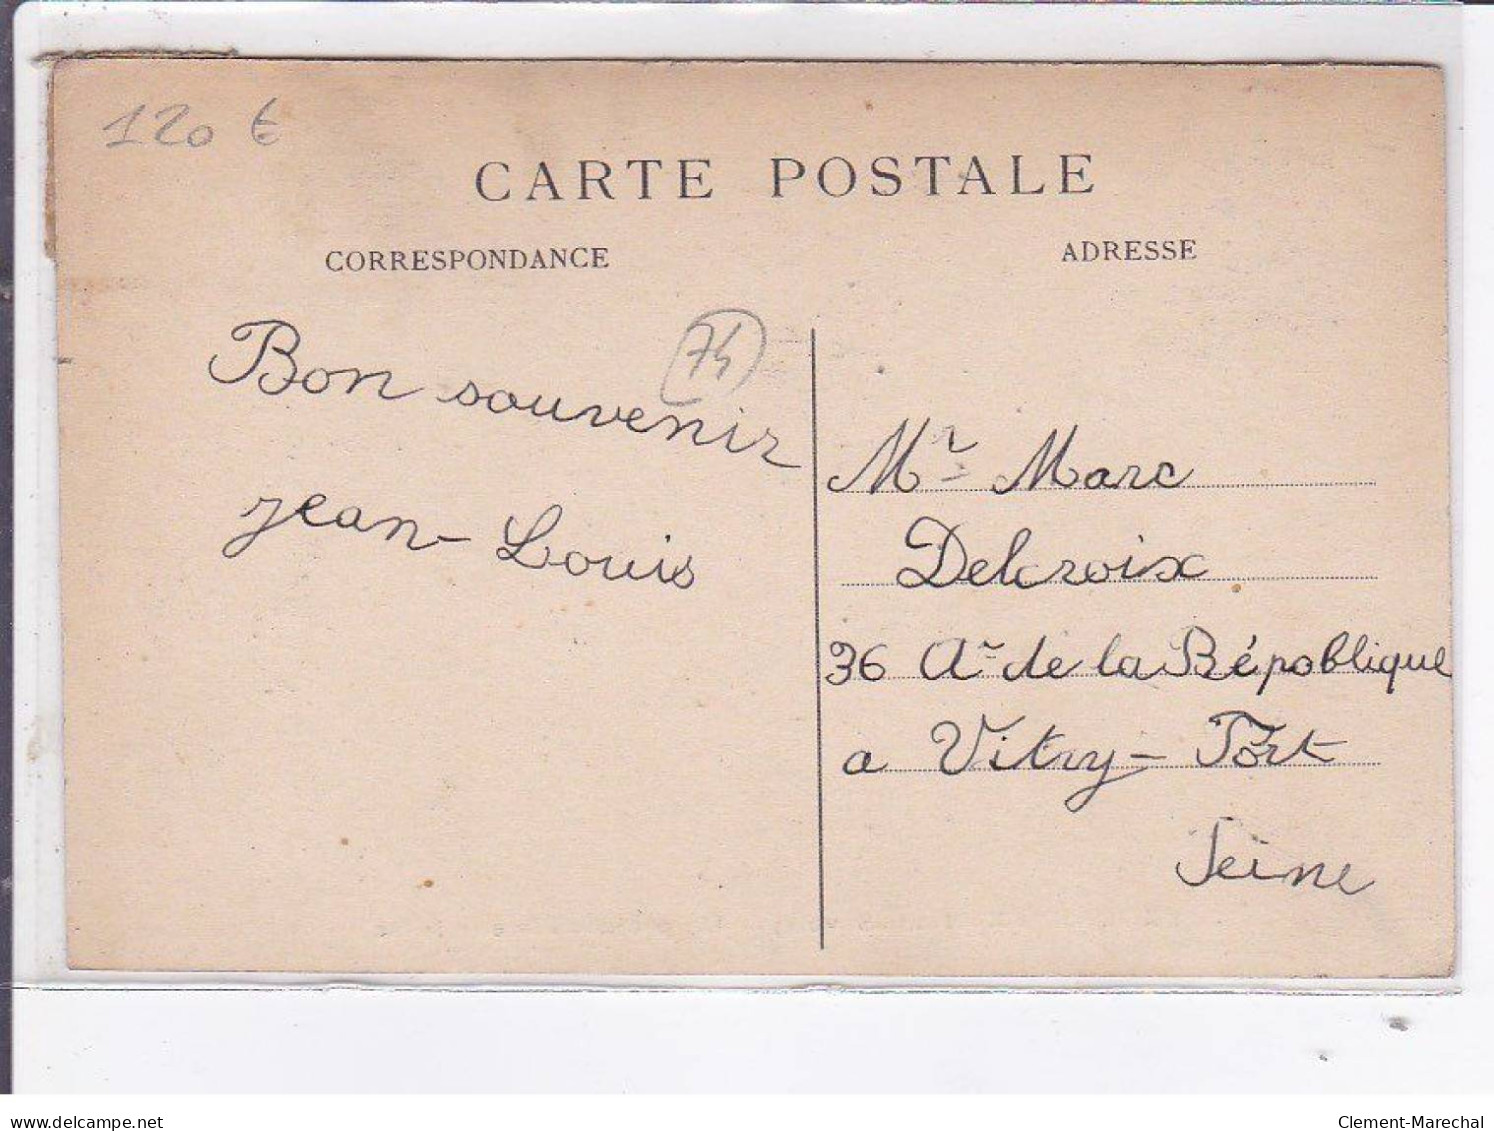 120 €
CARTE POSTALE
CORRESPONDANCE
ADRESSE
74
Bon souvenir
Jean-Louis
Mr Marc
Delcroix
36 Ar de la Répoblique
a Vitry-Fort
Seine
delcampe.net
Clement-Marechal